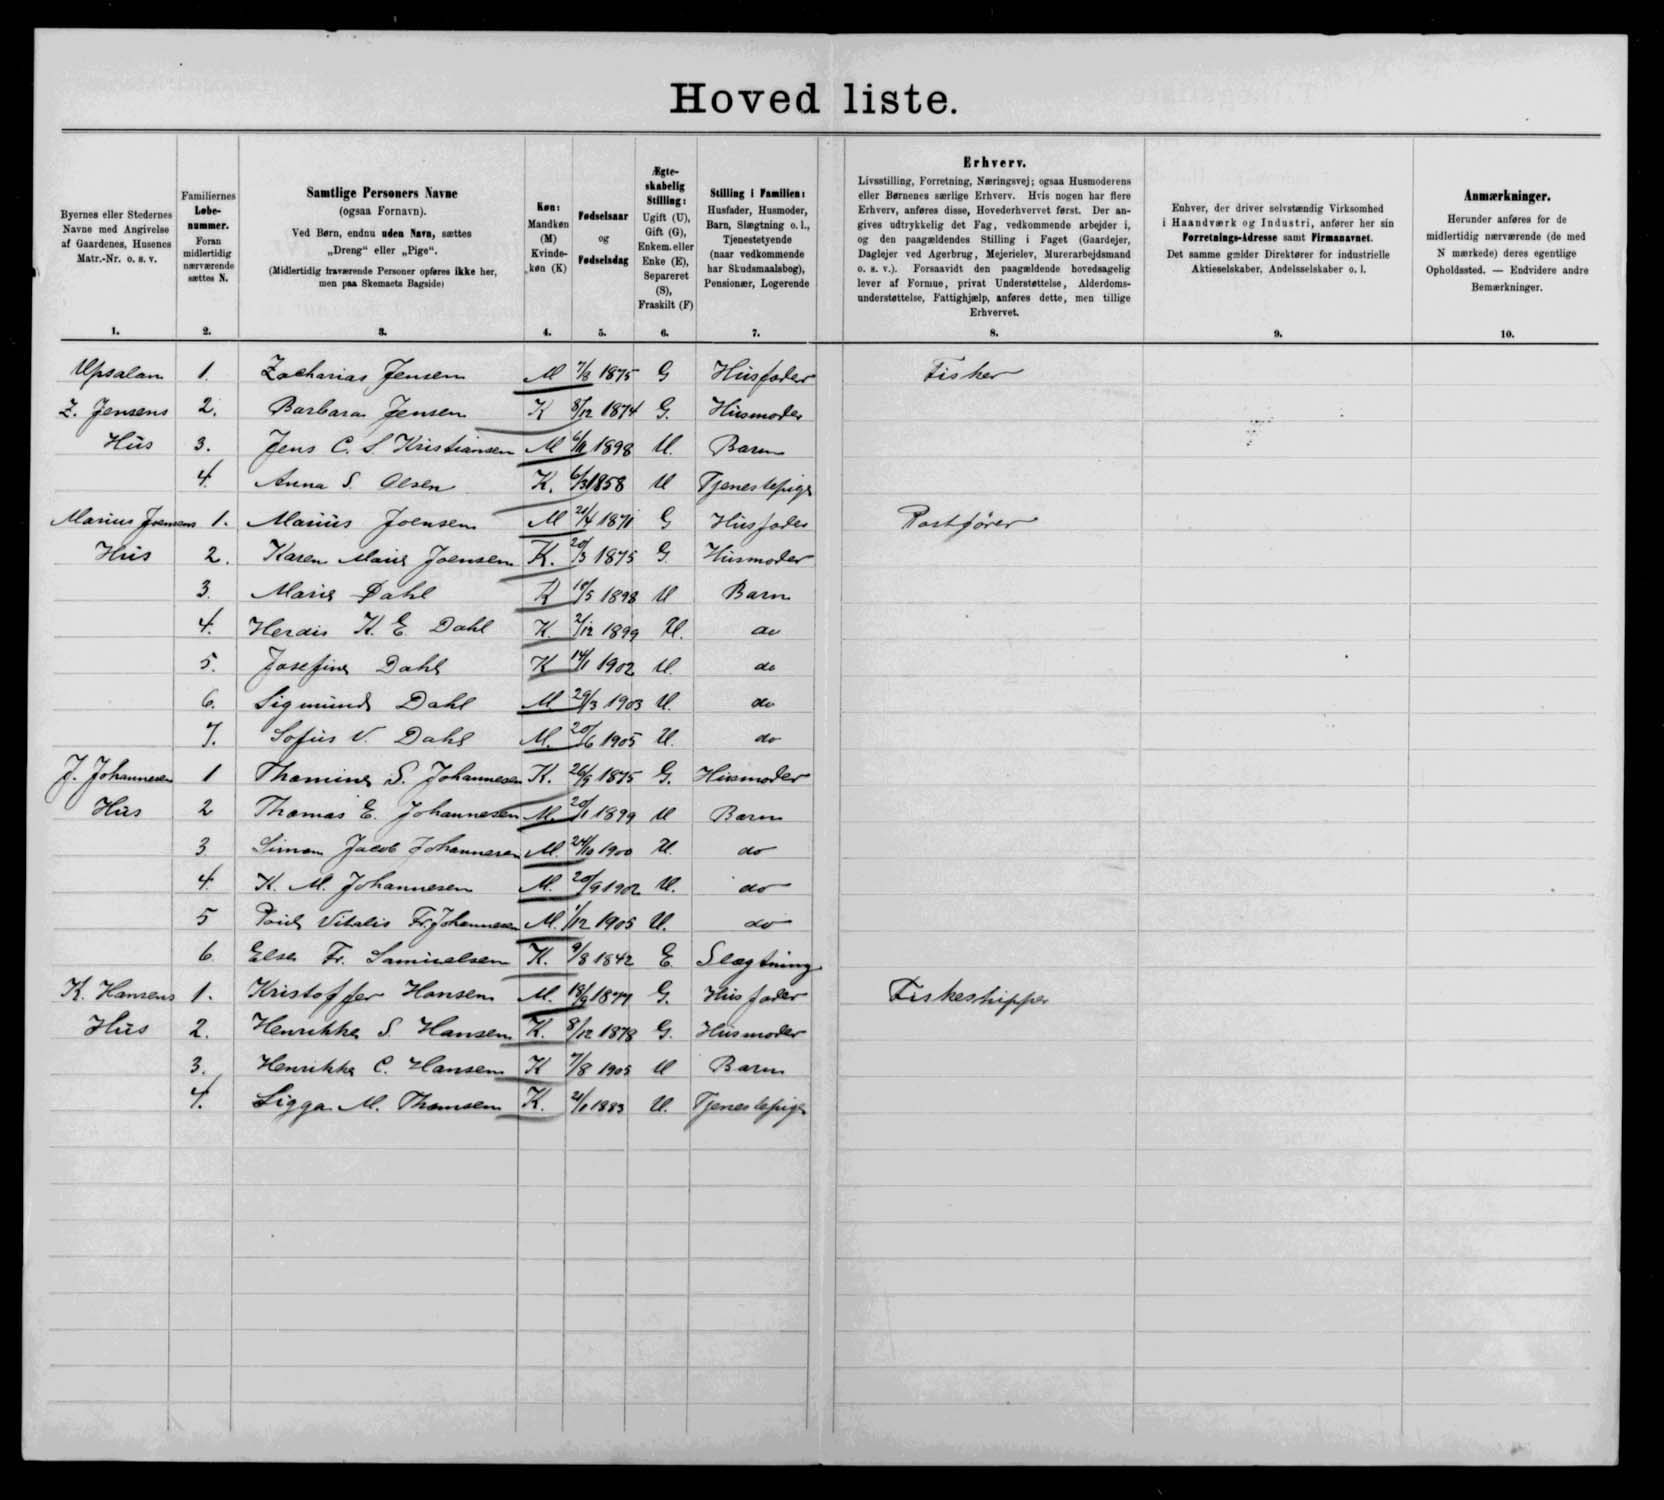 Hoved liste.
Byernes eller Stedernes
Navne med Angivelse
af Gaardenes, Husenes
Matr.-Nr. o. s. v.
1.
Familiernes
Løbe-
nummer.
Foran
midlertidig
nærværende
sættes N.
2.
Samtlige Personers Navne
(ogsaa Fornavn).
Ved Børn, endnu uden Navn, sættes
„Dreng“ eller „Pige“.
(Midlertidig fraværende Personer opføres ikke her,
men paa Skemaets Bagside)
3.
Køn:
Mandkøn
(M)
Kvinde-
køn (K)
4.
Fødselsaar
og
Fødselsdag
5.
Ægte-
skabelig
Stilling:
Ugift (U),
Gift (G),
Enkem. eller
Enke (E),
Separeret
(S),
Fraskilt (F)
6.
Stilling i Familien:
Husfader, Husmoder,
Barn, Slægtning o. l.,
Tjenestetyende
(naar vedkommende
har Skudsmaalsbog),
Pensionær, Logerende
7.
Erhverv.
Livsstilling, Forretning, Næringsvej; ogsaa Husmoderens
eller Børnenes særlige Erhverv. Hvis nogen har flere
Erhverv, anføres disse, Hovederhvervet først. Der an-
gives udtrykkelig det Fag, vedkommende arbejder i,
og den paagældendes Stilling i Faget (Gaardejer,
Daglejer ved Agerbrug, Mejerielev, Murerarbejdsmand
o. s. v.). Forsaavidt den paagældende hovedsagelig
lever af Formue, privat Understøttelse, Alderdoms-
understøttelse, Fattighjælp, anføres dette, men tillige
Erhvervet.
8.
Enhver, der driver selvstændig Virksomhed
i Haandværk og Industri, anfører her sin
Forretnings-Adresse samt Firmanavnet.
Det samme gælder Direktører for industrielle
Aktieselskaber, Andelsselskaber o. l.
9.
Anmærkninger.
Herunder anføres for de
midlertidig nærværende (de med
N mærkede) deres egentlige
Opholdssted. — Endvidere andre
Bemærkninger.
10.
Upsalam 1. Zacharias Jensen M 7/8 1875 G Husfader Fisker
Z. Jensens 2. Barbara Jensen K 8/12 1874 G. Husmoder
Hús 3. Jens C. S. Kristiansen M 6/11 1898 U. Barn
4. Anna S. Olsen K. 6/3 1858 U Tjenestepige
Marius Joensens 1. Marius Joensen M 21/4 1871 G Husfader Postfører
Hús 2. Karen Marie Joensen K. 20/3 1875 G. Husmoder
3. Marie Dahl K 10/5 1898 U Barn
4. Herdis K. E. Dahl K. 2/12 1899 U. do
5. Josefine Dahl K 14/1 1902 U. do
6. Sigmund Dahl M. 29/3 1903 U. do
7. Sofus V. Dahl M. 20/6 1905 U. do
J. Johannesen 1 Thomine S. Johannesen K. 26/9 1875 G. Husmoder
Hús 2 Thomas E. Johannesen M. 20/1 1899 U Barn
3 Simon Jacob Johannesen M. 24/10 1900 U. do
4. K. M. Johannesen M. 20/9 1902 U. do
5 Poul Vitalis Fr. Johannesen M. 1/12 1905 U. do
6 Else Fr. Samuelsen K. 9/8 1842 E. Slægtning
K. Hansens 1. Kristoffer Hansen M. 18/9 1877 G. Husfader Fiskeskipper
Hús 2. Henrikke S. Hansen K. 8/12 1878 G. Husmoder
3. Henrikke C. Hansen K 7/8 1905 U Barn
4. Sigga M. Thomsen K. 2/1 1883 U. Tjenestepige